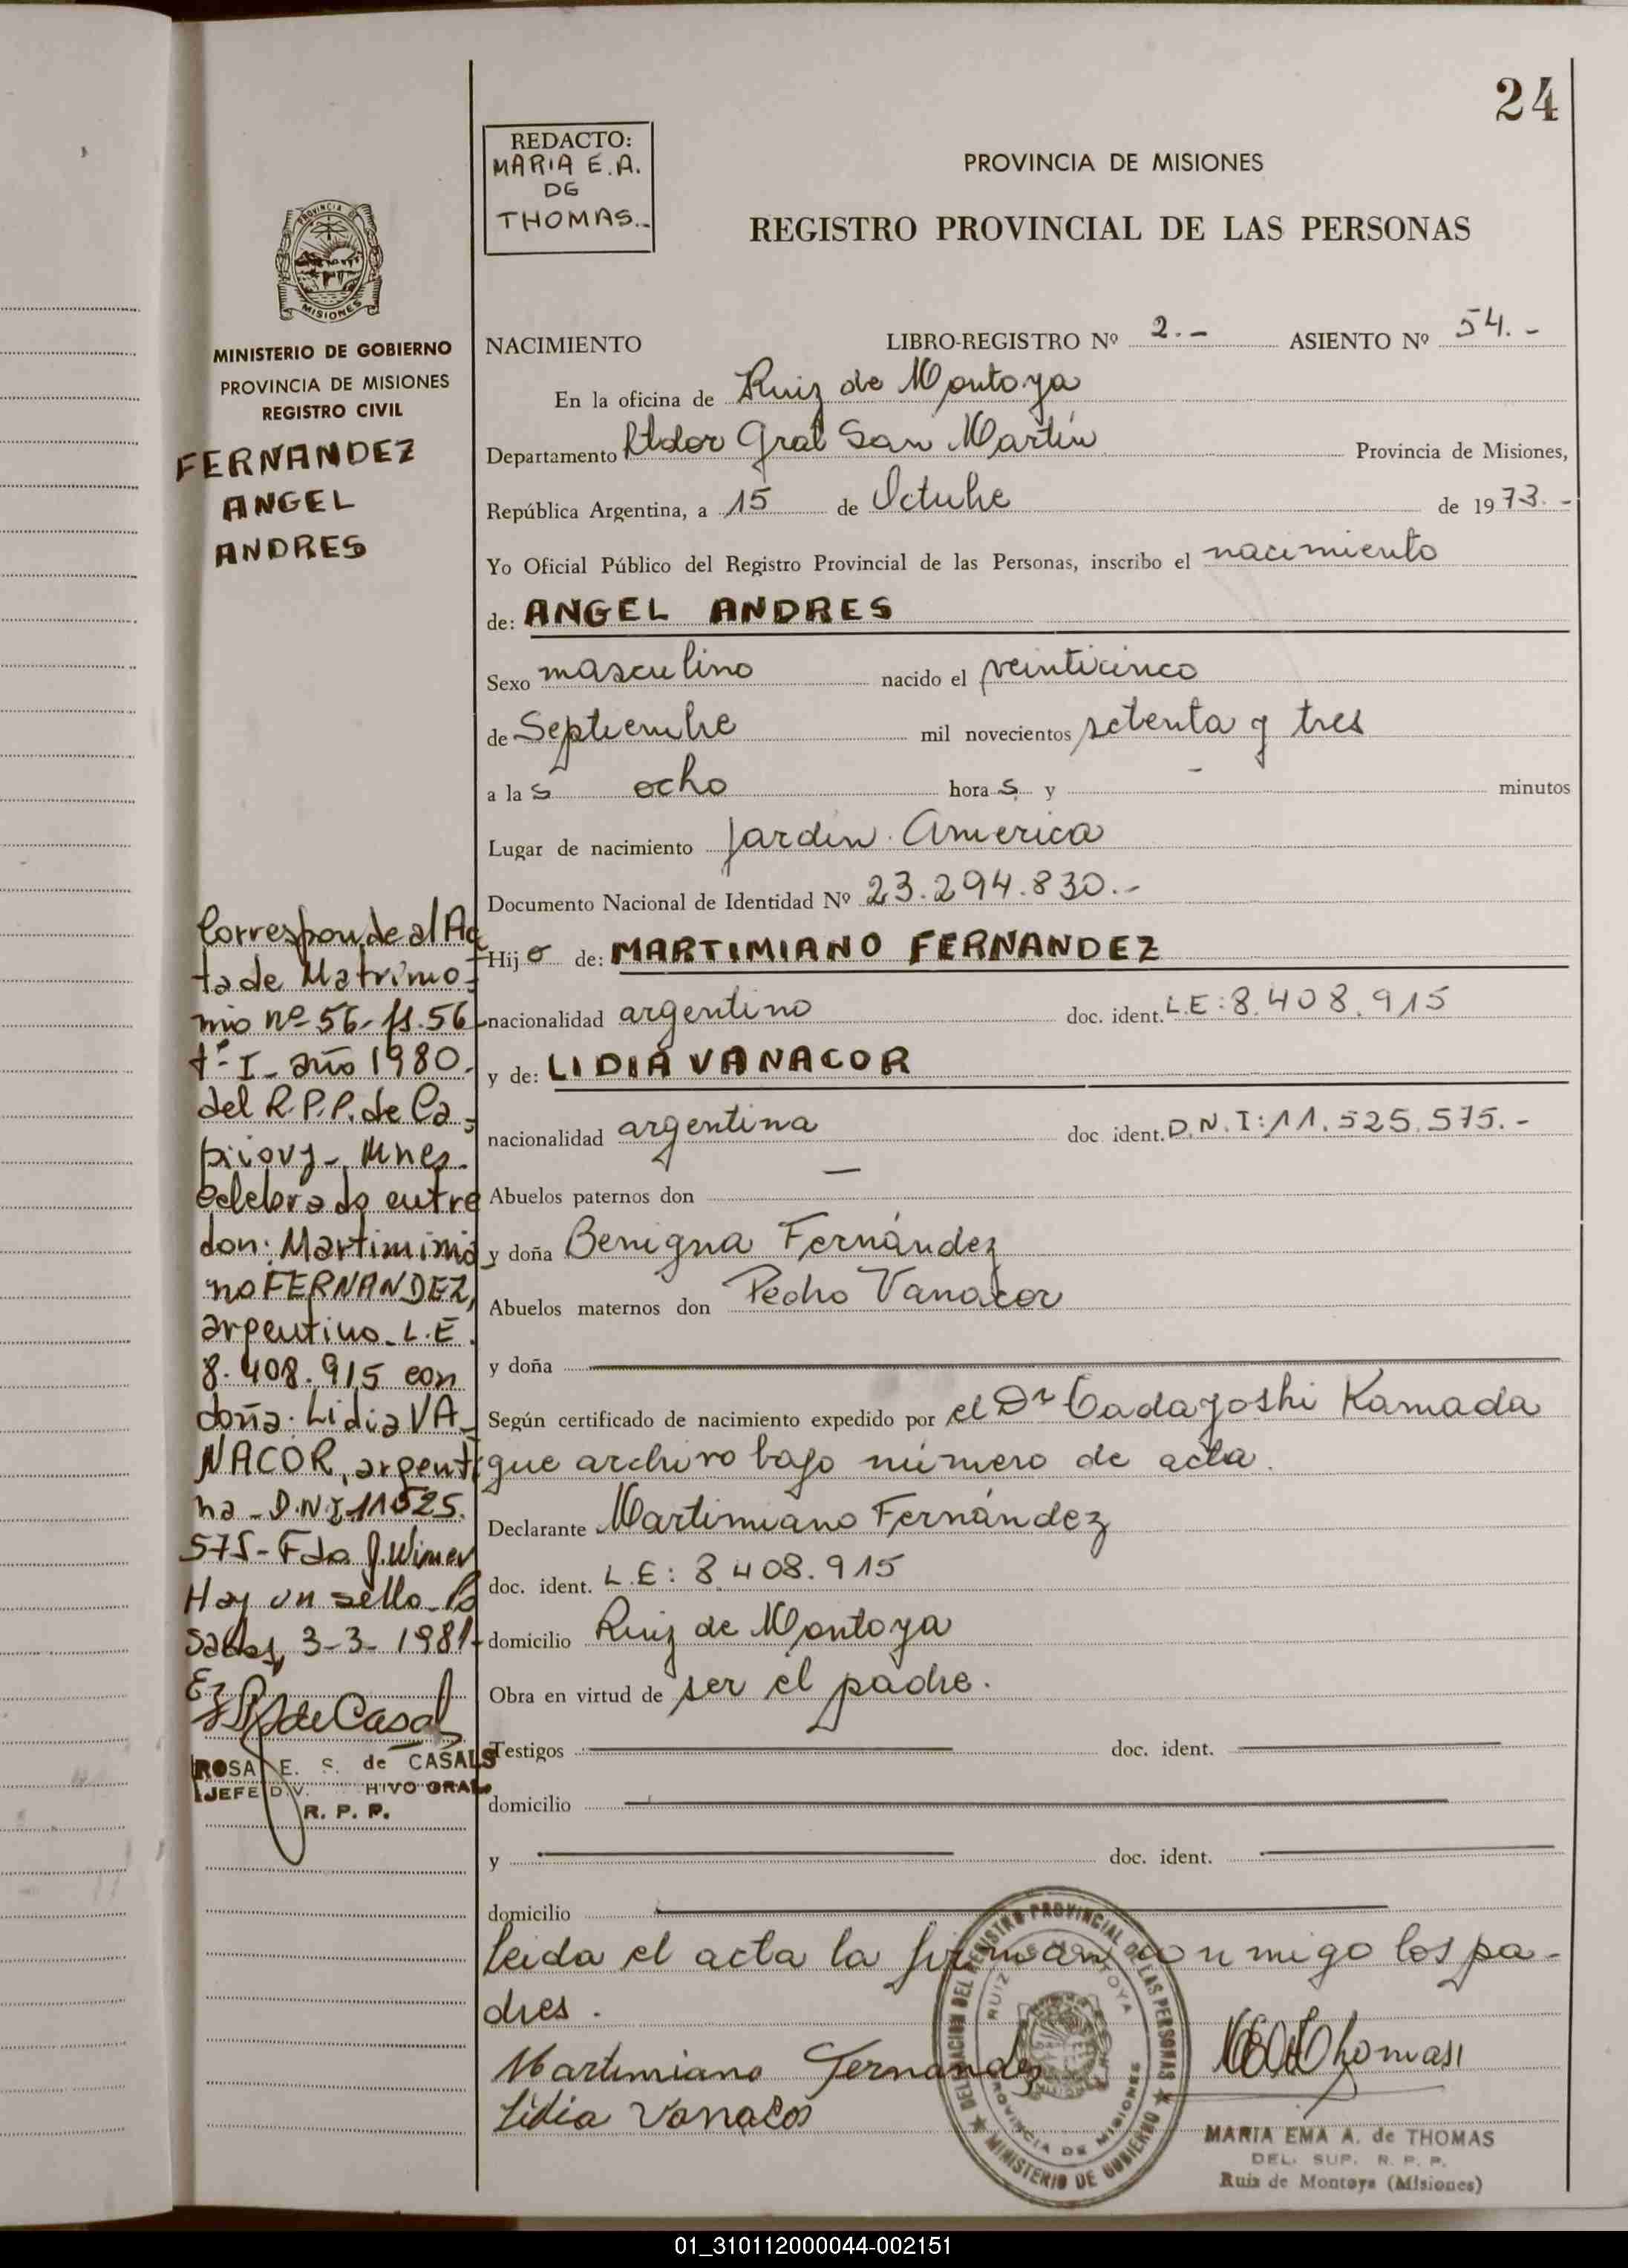 24
REDACTO:
MARIA E. A.
DE
THOMAS..
PROVINCIA DE MISIONES
REGISTRO PROVINCIAL DE LAS PERSONAS
PROVINCIA DE
MISIONES
MINISTERIO DE GOBIERNO
PROVINCIA DE MISIONES
REGISTRO CIVIL
FERNANDEZ
ANGEL
ANDRES
Corresponde al Ac
ta de Matrimo-
nio nº 56- fs. 56
tº- I- año 1980.
del R.P.P. de Ca-
piovy- Mnes.
celebrado entre
don: Martiminia
no FERNANDEZ,
argentino. L.E.
8.408.915 con
doña: Lidia VA-
NACOR, argenti
na - D.N.I 11525.
575- Fdo J. Wimer
Hay un sello- Po
sadas, 3-3-1981-
ROSA E. S. de CASALS
JEFE DIV. HIVO GRAL
R. P. P.
NACIMIENTO LIBRO-REGISTRO Nº 2.- ASIENTO Nº 54.-
En la oficina de Ruiz de Montoya
Departamento Ltdor Gral San Martín Provincia de Misiones,
República Argentina, a 15 de Octubre de 1973.-
Yo Oficial Público del Registro Provincial de las Personas, inscribo el nacimiento
de: ANGEL ANDRES
Sexo masculino nacido el veinticinco
de Septiembre mil novecientos setenta y tres
a las ocho horas y - minutos
Lugar de nacimiento Jardin America
Documento Nacional de Identidad Nº 23.294.830.-
Hijo de: MARTIMIANO FERNANDEZ
nacionalidad argentino doc. ident. L.E: 8.408.915
y de: LIDIA VANACOR
nacionalidad argentina doc ident. D.N.I: 11.525.575.-
Abuelos paternos don —
y doña Benigna Fernández
Abuelos maternos don Pedro Vanacor
y doña
Según certificado de nacimiento expedido por el Dr Cadayoshi Kamada
que archivo bajo número de acta.
Declarante Martimiano Fernández
doc. ident. L.E: 8.408.915
domicilio Ruiz de Montoya
Obra en virtud de ser el padre.
Testigos doc. ident.
domicilio
y doc. ident.
domicilio
Leida el acta la firman conmigo los pa-
dres.
Martimiano Fernandez
Lidia Vanacor
DELEGACION DEL REGISTRO PROVINCIAL DE LAS PERSONAS
MINISTERIO DE GOBIERNO
RUIZ DE MONTOYA
PROVINCIA DE MISIONES
MARIA EMA A. de THOMAS
DEL. SUP. R. P. P.
Ruiz de Montoya (Misiones)
01_310112000044-002151